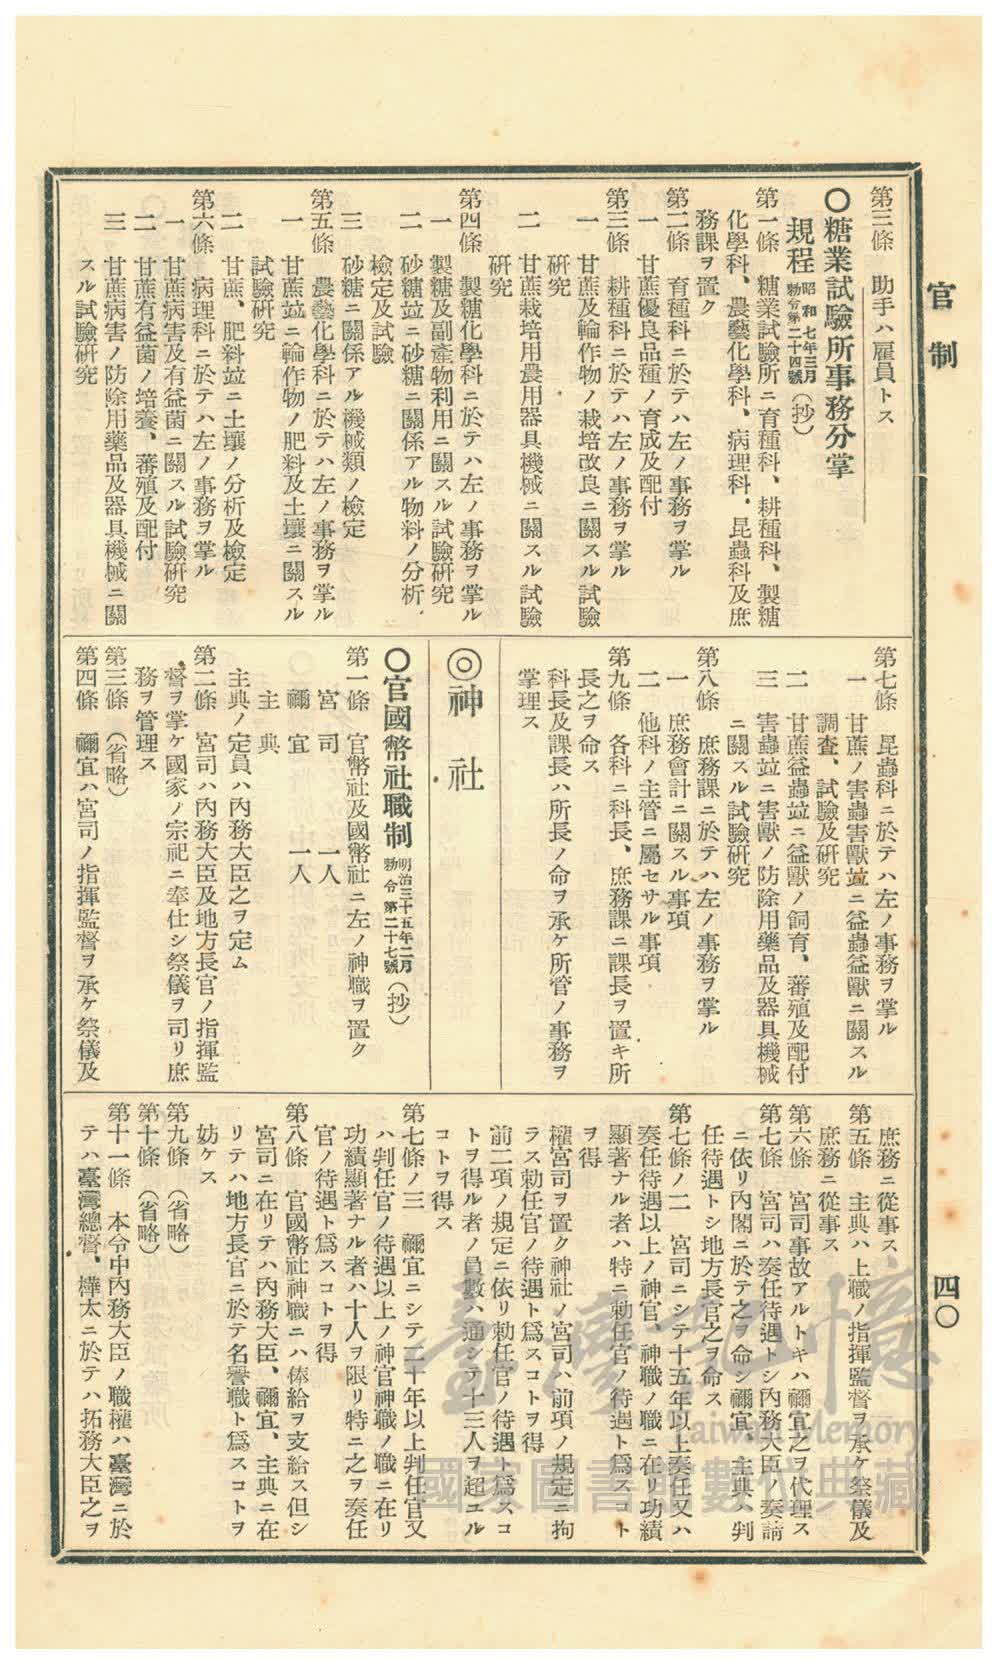 官制
四〇
第三條　助手ハ雇員トス
〇糖業試驗所事務分掌
規程 昭和七年三月 勅令第二十四號 （抄）
第一條　糖業試驗所ニ育種科、耕種科、製糖
化學科、農藝化學科、病理科、昆蟲科及庶
務課ヲ置ク
第二條　育種科ニ於テハ左ノ事務ヲ掌ル
一　甘蔗優良品種ノ育成及配付
第三條　耕種科ニ於テハ左ノ事務ヲ掌ル
一　甘蔗及輪作物ノ栽培改良ニ關スル試驗
硏究
二　甘蔗栽培用農用器具機械ニ關スル試驗
硏究
第四條　製糖化學科ニ於テハ左ノ事務ヲ掌ル
一　製糖及副產物利用ニ關スル試驗硏究
二　砂糖竝ニ砂糖ニ關係アル物料ノ分析
檢定及試驗
三　砂糖ニ關係アル機械類ノ檢定
第五條　農藝化學科ニ於テハ左ノ事務ヲ掌ル
一　甘蔗竝ニ輪作物ノ肥料及土壤ニ關スル
試驗硏究
二　甘蔗、肥料竝ニ土壤ノ分析及檢定
第六條　病理科ニ於テハ左ノ事務ヲ掌ル
一　甘蔗病害及有益菌ニ關スル試驗硏究
二　甘蔗有益菌ノ培養、蕃殖及配付
三　甘蔗病害ノ防除用藥品及器具機械ニ關
スル試驗硏究
第七條　昆蟲科ニ於テハ左ノ事務ヲ掌ル
一　甘蔗ノ害蟲害獸竝ニ益蟲益獸ニ關スル
調查、試驗及硏究
二　甘蔗益蟲竝ニ益獸ノ飼育、蕃殖及配付
三　害蟲竝ニ害獸ノ防除用藥品及器具機械
ニ關スル試驗硏究
第八條　庶務課ニ於テハ左ノ事務ヲ掌ル
一　庶務會計ニ關スル事項
二　他科ノ主管ニ屬セサル事項
第九條　各科ニ科長、庶務課ニ課長ヲ置キ所
長之ヲ命ス
科長及課長ハ所長ノ命ヲ承ケ所管ノ事務ヲ
掌理ス
◎神社
〇官國幣社職制 明治三十五年二月 勅令第二十七號 （抄）
第一條　官幣社及國幣社ニ左ノ神職ヲ置ク
宮司　一人
禰宜　一人
主典
主典ノ定員ハ內務大臣之ヲ定ム
第二條　宮司ハ內務大臣及地方長官ノ指揮監
督ヲ掌ケ國家ノ宗祀ニ奉仕シ祭儀ヲ司リ庶
務ヲ管理ス
第三條　（省略）
第四條　禰宜ハ宮司ノ指揮監督ヲ承ケ祭儀及
庶務ニ從事ス
第五條　主典ハ上職ノ指揮監督ヲ承ケ祭儀及
庶務ニ從事ス
第六條　宮司事故アルトキハ禰宜之ヲ代理ス
第七條　宮司ハ奏任待遇トシ內務大臣ノ奏請
ニ依リ內閣ニ於テ之ヲ命シ禰宜、主典ハ判
任待遇トシ地方長官之ヲ命ス
第七條ノ二　宮司ニシテ十五年以上奏任又ハ
奏任待遇以上ノ神官、神職ノ職ニ在リ功績
顯著ナル者ハ特ニ勅任官ノ待遇ト爲スコト
ヲ得
權宮司ヲ置ク神社ノ宮司ハ前項ノ規定ニ拘
ラス勅任官ノ待遇ト爲スコトヲ得
前二項ノ規定ニ依リ勅任官ノ待遇ト爲スコ
トヲ得ル者ノ員數ハ通シテ十三人ヲ超ユル
コトヲ得ス
第七條ノ三　禰宜ニシテ二十年以上判任官又
ハ判任官ノ待遇以上ノ神官神職ノ職ニ在リ
功績顯著ナル者ハ十人ヲ限リ特ニ之ヲ奏任
官ノ待遇ト爲スコトヲ得
第八條　官國幣社神職ニハ俸給ヲ支給ス但シ
宮司ニ在リテハ內務大臣、禰宜、主典ニ在
リテハ地方長官ニ於テ名譽職ト爲スコトヲ
妨ケス
第九條　（省略）
第十條　（省略）
第十一條　本令中內務大臣ノ職權ハ臺灣ニ於
テハ臺灣總督、樺太ニ於テハ拓務大臣之ヲ
臺灣記憶
Taiwan Memory
國家圖書館數位典藏